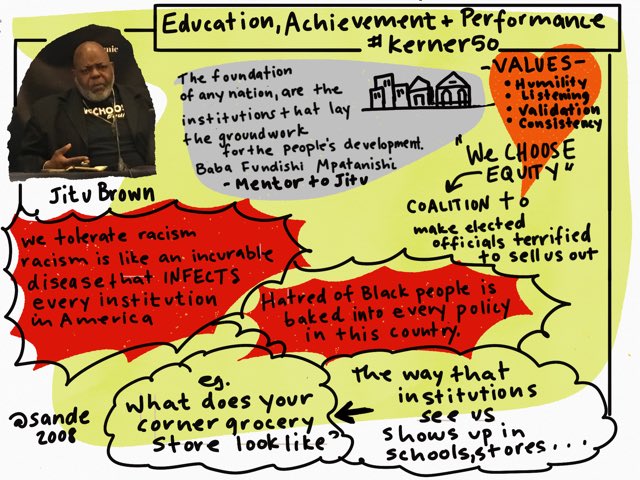 Education, Achievement + Performance
#kerner50
The foundation
of any nation, are the
institutions that lay
the groundwork
for the people's development.
Baba Fundishi Mpatanishi
- Mentor to Jitu
-VALUES-
• Humility
• Listening
• Validation
• Consistency
"We CHOOSE
EQUITY"
COALITION to
make elected
officials terrified
to sell us out
Jitu Brown
we tolerate racism
racism is like an incurable
disease that INFECTS
every institution
in America
Hatred of Black people is
baked into every policy
in this country.
The way that
institutions
see us
shows up in
schools, stores...
eg.
What does your
corner grocery
Store look like?
@sande
2008